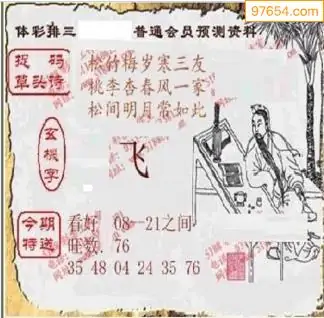 97654.com
体彩排三 普通会员预测资料
捉码
草头诗
松竹梅岁寒三友
桃李杏春风一家
松间明月常如此
玄机字
飞
今期
特送
看好 08—21之间
旺数 76
35 48 04 24 35 76